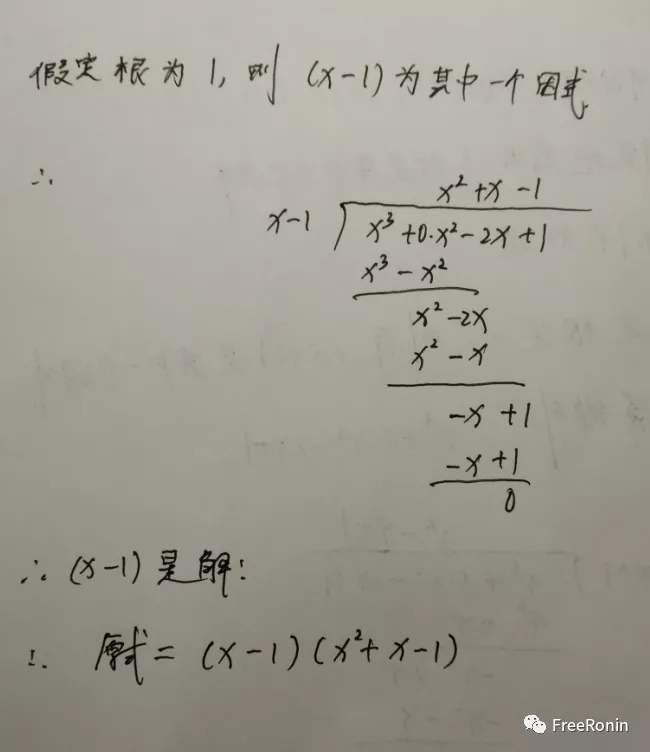 假定根为1,则(x-1)为其中一个因式
∴
x²+x-1
x-1 x³+0·x²-2x+1
x³-x²
x²-2x
x²-x
-x+1
-x+1
0
∴(x-1)是解!
∴ 原式=(x-1)(x²+x-1)
FreeRonin